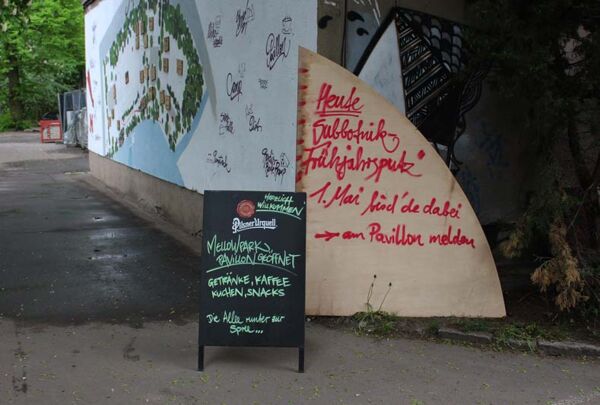 HERZLICH
WILLKOMMEN
Pilsner Urquell
MELLOWPARK
PAVILLON GEÖFFNET
GETRÄNKE, KAFFEE
KUCHEN, SNACKS
Die Allee runter zur
Spree...
Heute
Subbotnik-
"Frühjahrsputz"
1. Mai bisd'de dabei
→ am Pavillon melden